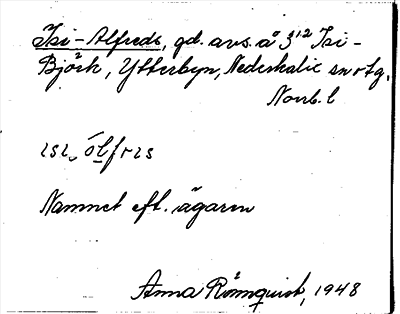 Isi-Alfreds, gd. avs. å 3¹² Isi-
Björk, Ytterbyn, Nederkalix sn o tg.
Norrb. l
ɪsɪ, ólfrɪs
Namnet eft. ägaren
Anna Rönnquist, 1948